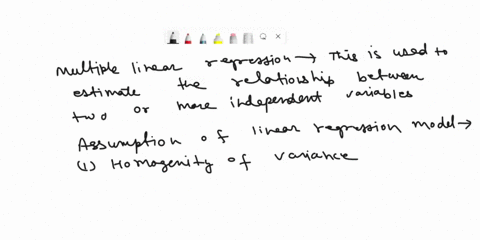 Multiple linear regression → This is used to
estimate the relationship between
two or more independent variables
Assumption of linear regression model →
(1) Homogenity of variance